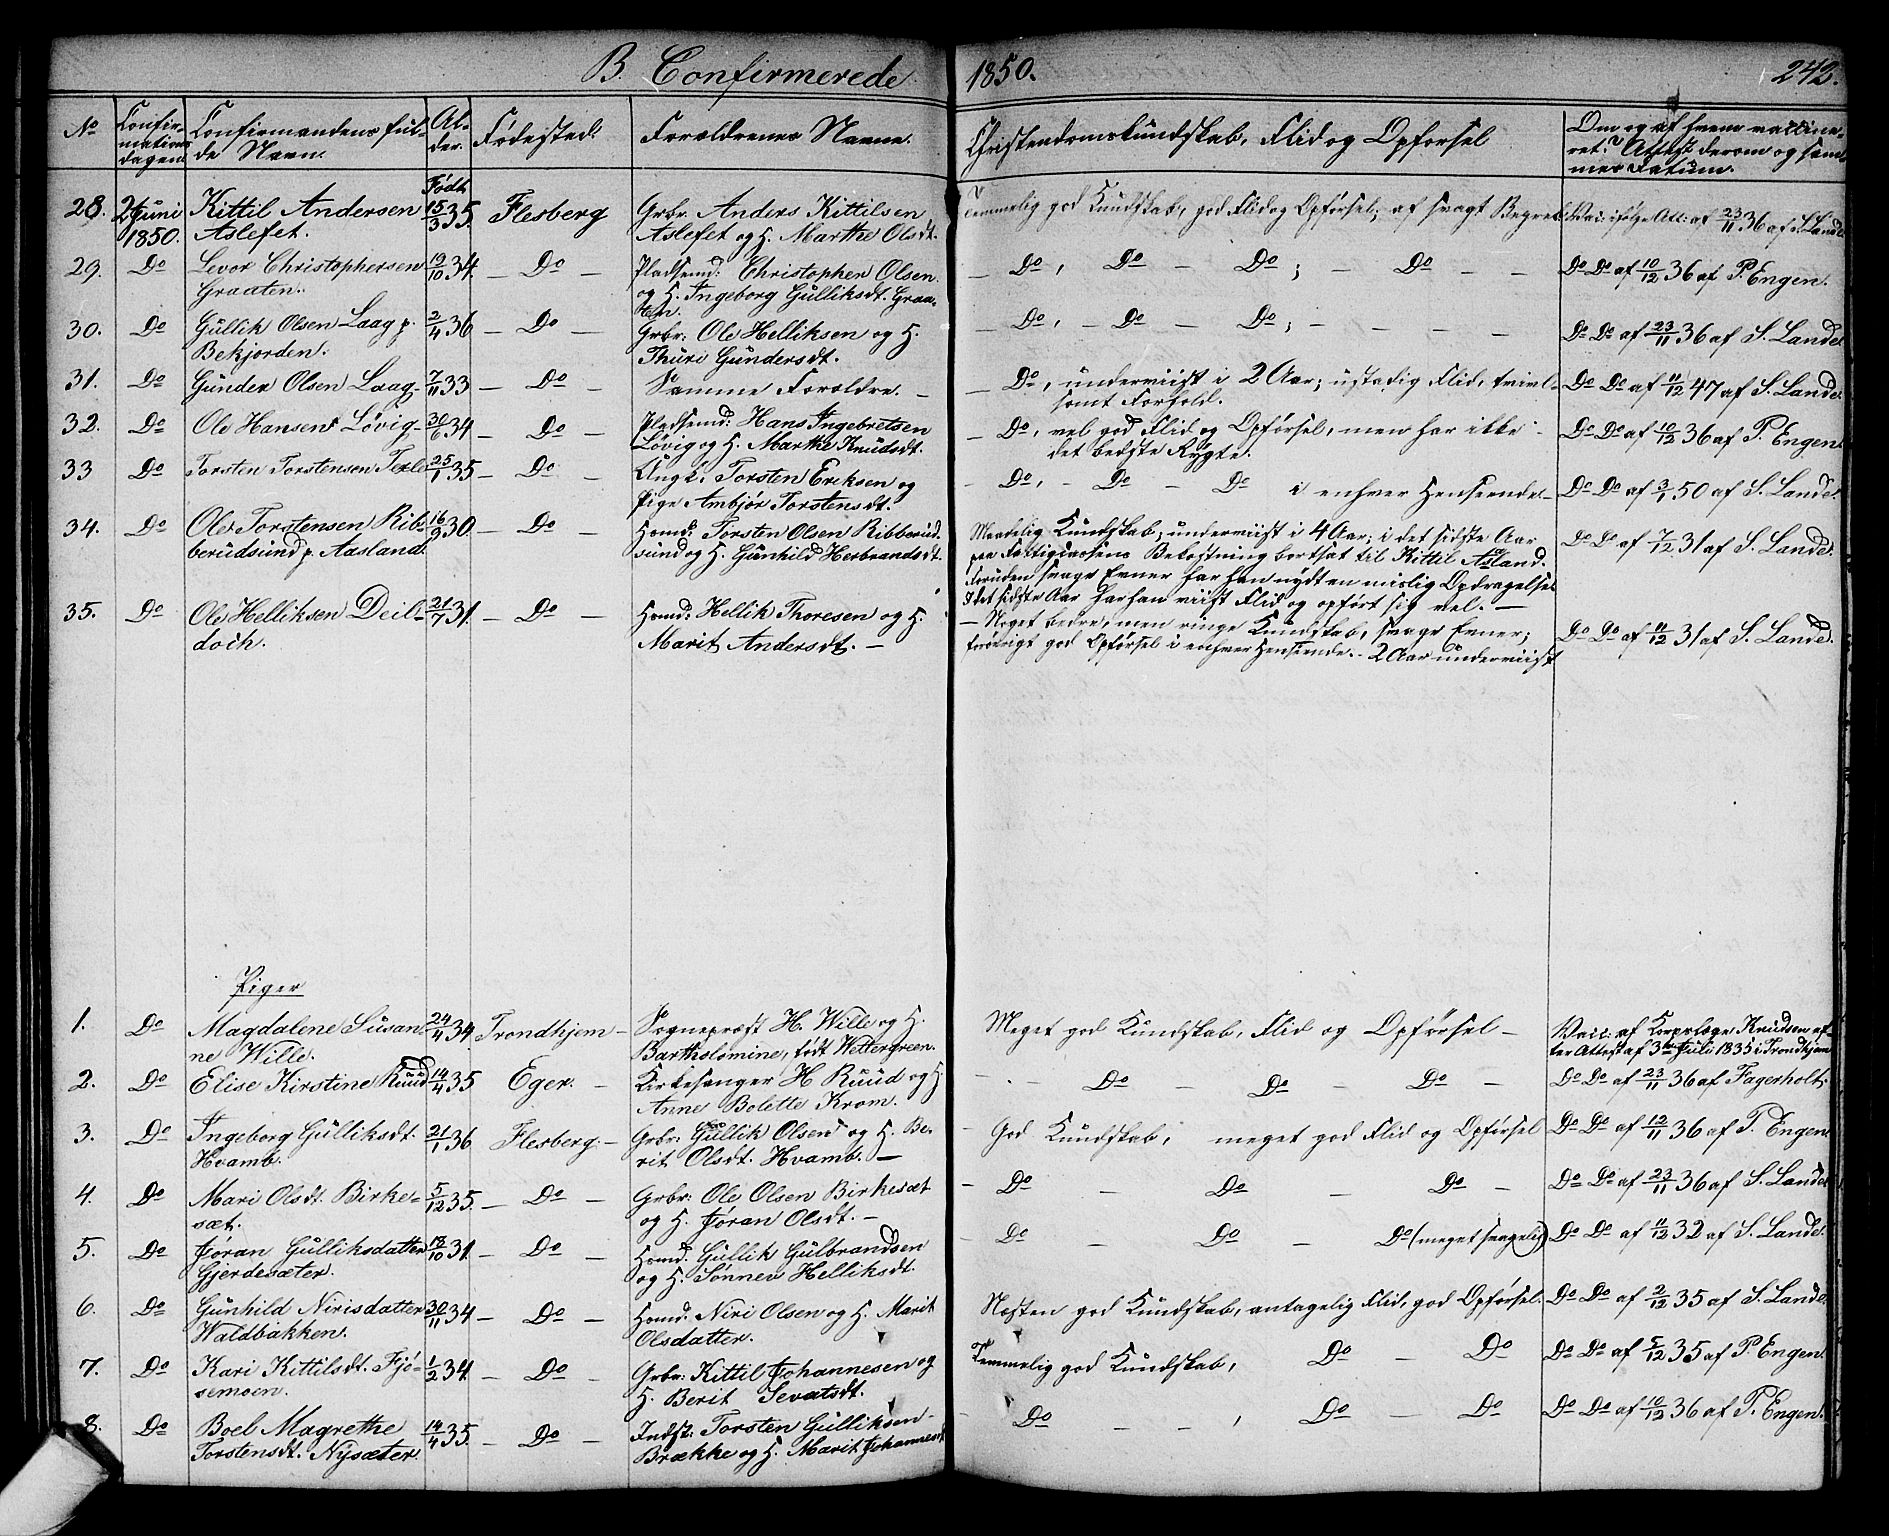 B. Confirmerede 1850. 242.
No
Confir-
mations
dagen.
Confirmandens ful-
de Navn.
Al-
der.
Fødested.
Forældrenes Navne.
Christendomskundskab, Flid og Opførsel
Om og af hvem vaccine-
ret? Attest derom og sam-
mes Datum.
28. 2 Juni 1850. Kittil Andersen Aslefet. Født 15/3 35. Flesberg Grbr. Anders Kittilsen
Aslefet og H. Marthe Olsdt.
Temmelig god Kundskab, god Flid og Opførsel; af svagt Begreb. Vacc. ifølge Att: af 23/11 36 af S. Lande.
29. Do Levor Christophersen 19/10 34. — Do — Pladsmd: Christopher Olsen
Graaten. og H. Ingeborg Gulliksdt. Graa-
ten.
— Do, Do — Do; — Do — — Do Do af 10/12 36 af P. Engen.
30. Do Gullik Olsen Laag p. 2/4 36 — Do — Grbr: Ole Helliksen og H.
Bekjorden. Thuri Gundersdt.
— Do, — Do — Do; — — — — Do Do af 23/11 36 af S. Lande.
31. Do Gunder Olsen Laag 7/11 33 — Do — Samme Forældre. —
— Do, underviist i 2 Aar; ustadig Flid, tvivl- Do Do af 11/12 47 af S. Lande.
somt Forhold.
32. Do Ole Hansen Løvig 30/6 34 — Do — Pladsmd: Hans Ingebretsen
Løvig og H. Marthe Knudsdt.
— Do, vel god Flid og Opførsel, men har ikke Do Do af 10/12 36 af P. Engen.
det bedste Rygte.
33 Do Torsten Torstensen 25/1 35 — Do — Ungk: Torsten Eriksen og
Pige Ambjør Torstensdt.
— Do, — Do — Do i enhver Henseende — Do Do af 3/1 50 af S. Lande.
34. Do Ole Torstensen Rib- 16/9 30. — Do — Hsmd: Torsten Olsen Ribberud-
berudsund p. Aasland. sund og H. Gunhild Herbrandsdt.
Maadelig Kundskab; underviist i 4 Aar; i det sidste Aar Do Do af 7/12 31 af S. Lande.
paa Fattigkassens Bekostning bortsat til Kittil Asland.
Foruden svage Evner har han nydt en mislig Opdragelse.
I det sidste Aar har han viist Flid og opført sig vel. —
35. Do Ole Helliksen Deili- 21/7 31. — Do — Hsmd: Hellik Thoresen og H.
doch. Marit Andersdt. —
— Noget bedre, men ringe Kundskab, svage Evner; Do Do af 11/12 31 af S. Lande.
forøvrigt god Opførsel i enhver Henseende. - 2 Aar underviist
Piger
1. Do Magdalene Susan- 24/4 34 Trondhjem — Sognepræst H. Wille og H.
ne Wille. Bartholomine, født Wettergreen.
Meget god Kundskab, Flid og Opførsel — Vacc: af Korpslæge Knudsen ef-
ter Attest af 3die Juli 1835 i Trondhjem
2. Do Elise Kirstine Ruud 14/4 35 Eger. — Kirkesanger H Ruud og H.
Anne Bolette Krom.
— Do — Do — Do — Do Do af 23/11 36 af Fagerholt.
3. Do Ingeborg Gulliksdt. 21/1 36 Flesberg. — Grbr: Gullik Olsen og H. Be-
Hvamb. rit Olsdt. Hvamb. —
God Kundskab, meget god Flid og Opførsel Do Do af 12/11 36 af P. Engen.
4. Do Mari Olsdt. Birke- 5/12 35. — Do — Grbr: Ole Olsen Birkesæt
sæt. og H. Jøran Olsdt. —
— Do — Do — Do — Do Do af 23/11 36 af S. Lande
5. Do Jøran Gulliksdatter 18/10 31. — Do — Hsmd. Gullik Gulbrandsen
Gjerdesæter. og H. Sønnev Helliksdt.
— Do — Do — Do (meget svagelig) Do Do af 11/12 32 af S. Lande.
6. Do Gunhild Nirisdatter 30/11 34 — Do — Hsmd. Niri Olsen og H. Marit
Waldbakken. Olsdatter.
Næsten god Kundskab, antagelig Flid, god Opførsel. Do Do af 2/12 35 af S. Lande.
7. Do Kari Kittilsdt. Fjø- 1/2 34. — Do — Grbr: Kittil Johannesen og
semoen. H. Berit Sevatsdt.
Temmelig god Kundskab, Do — Do Do Do af 5/12 35 af P. Engen.
8. Do Boel Magrethe 14/4 35. — Do — Indst: Torsten Gulliksen
Torstensdt. Nysæter. Brække og H. Marit Johannesdt
Do — — , Do — Do Do Do af 10/12 36 af P. Engen.